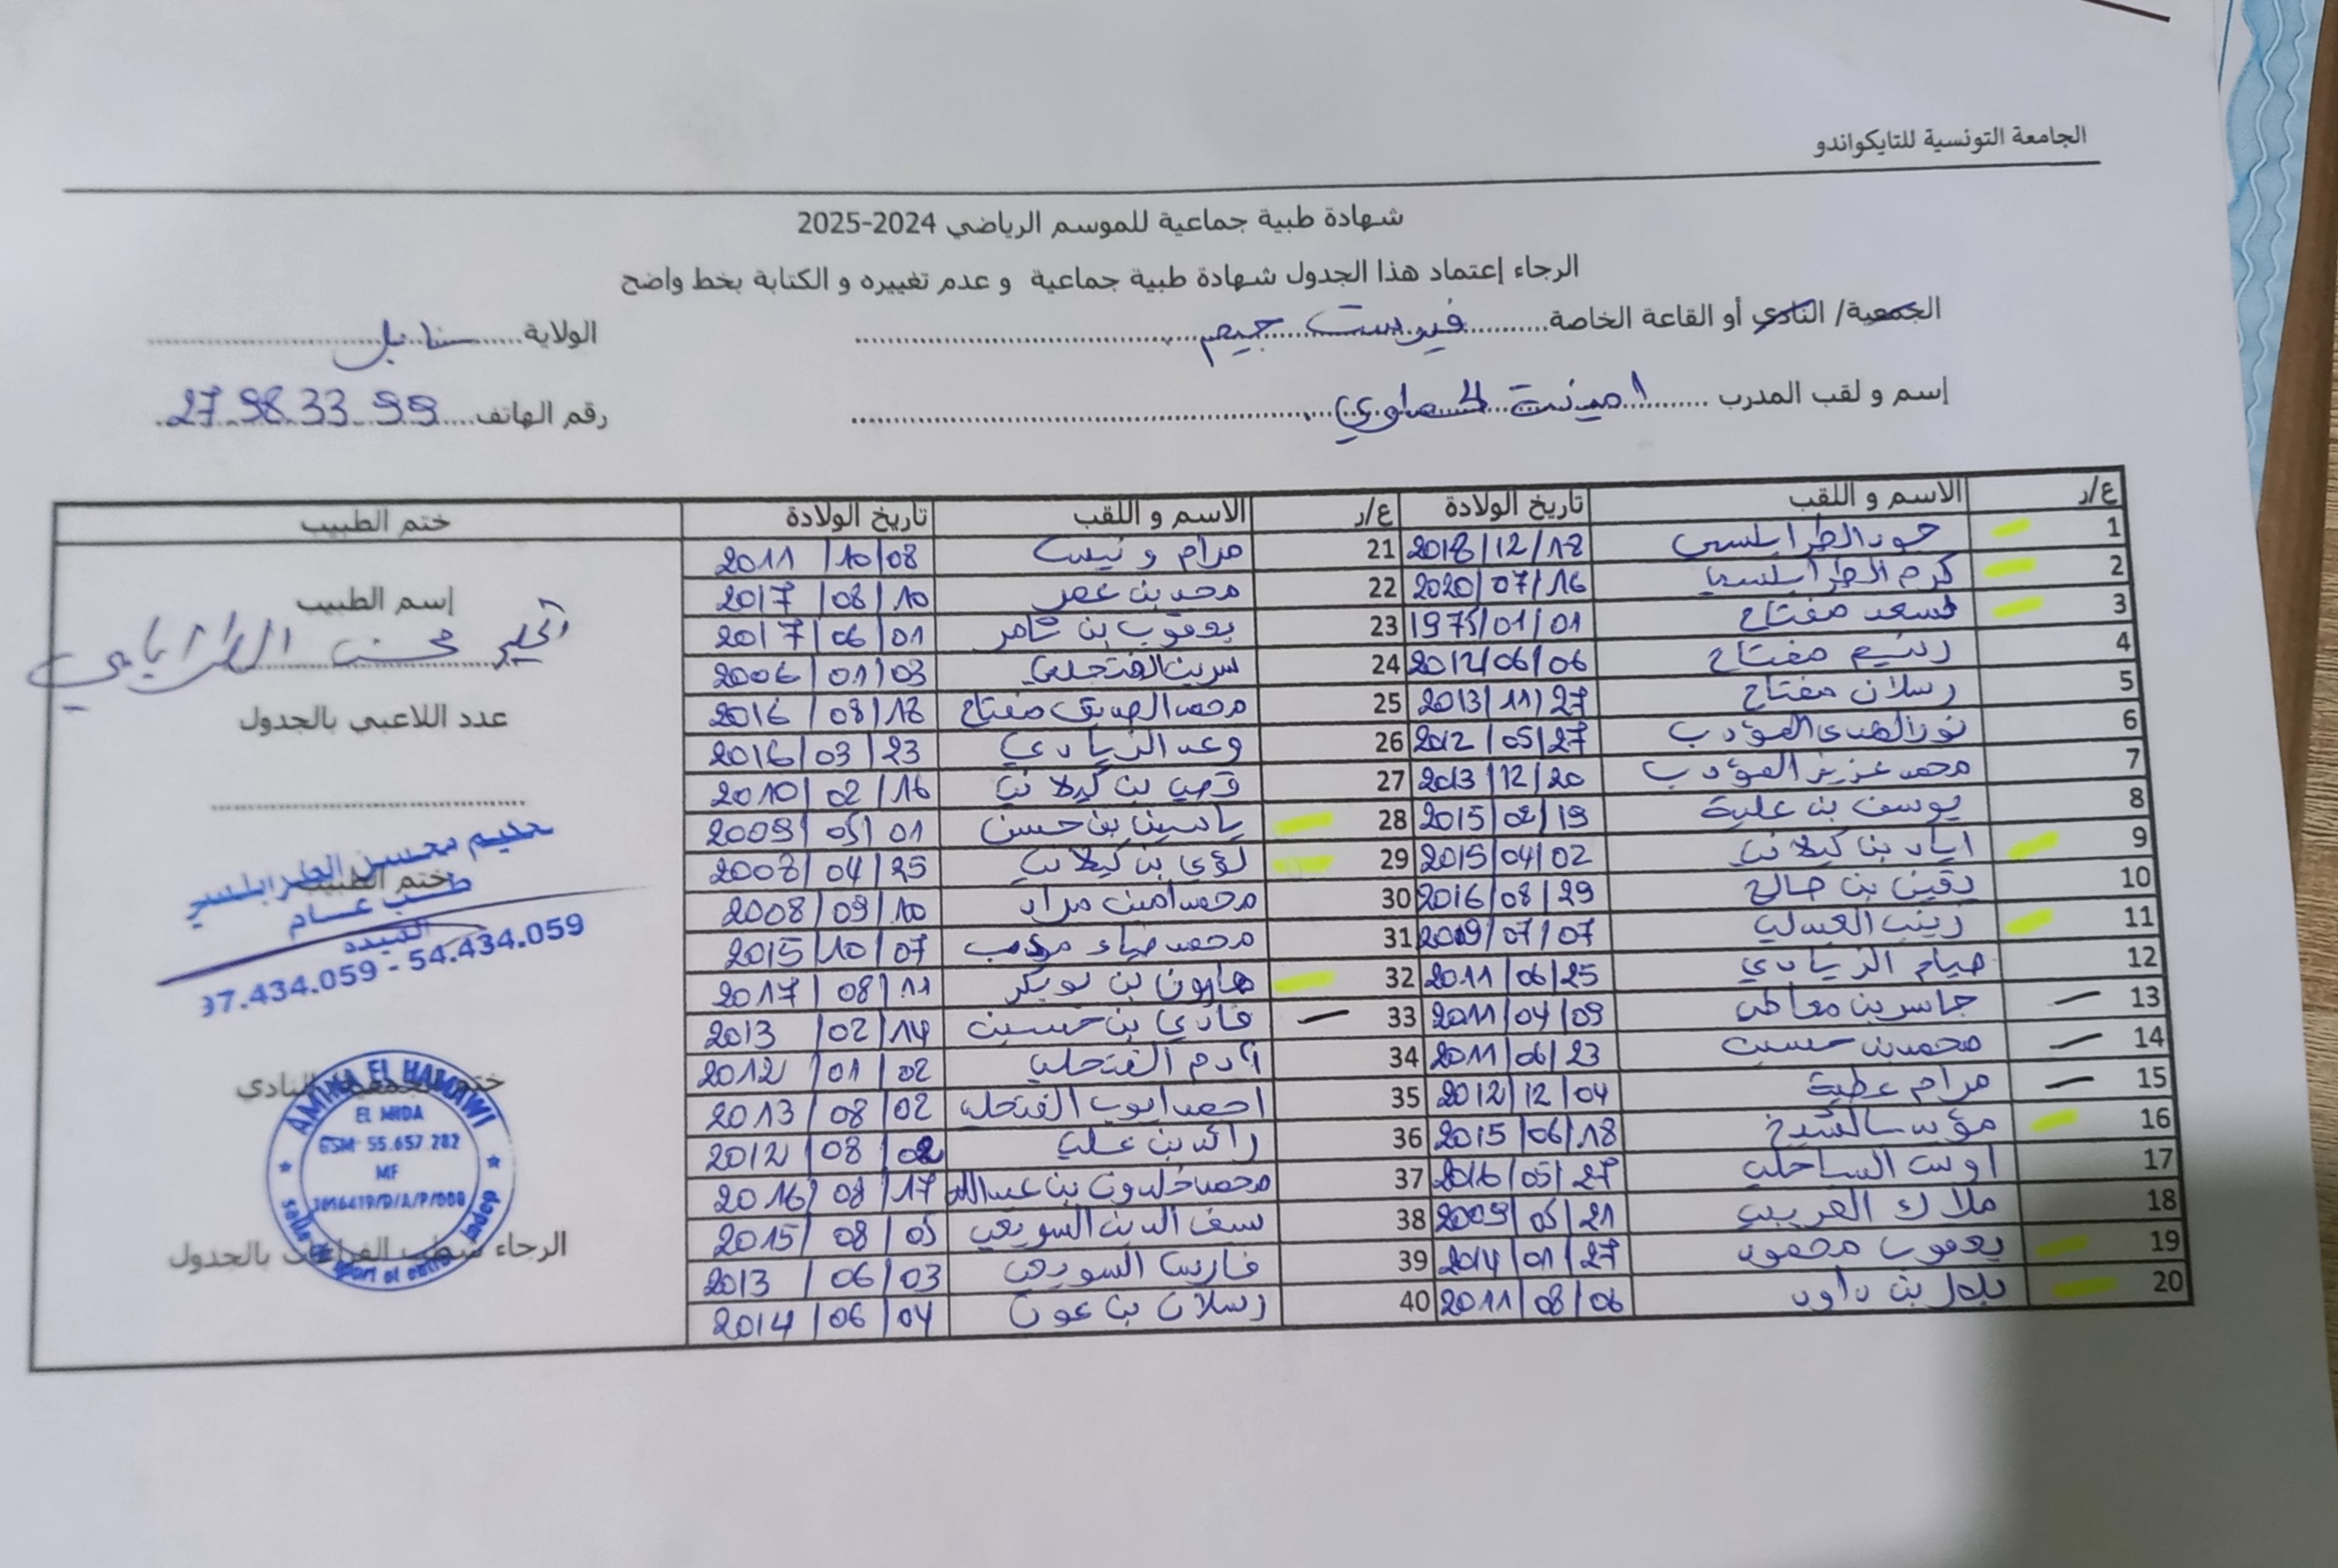 الجامعة التونسية للتايكواندو
شهادة طبية جماعية للموسم الرياضي 2024-2025
الرجاء إعتماد هذا الجدول شهادة طبية جماعية و عدم تغييره و الكتابة بخط واضح
الجمعية/ النادي أو القاعة الخاصة فيرست جيم الولاية نابل
إسم و لقب المدرب امينة الحماوي رقم الهاتف 27.98.33.99
ع/ر الاسم و اللقب تاريخ الولادة ع/ر الاسم و اللقب تاريخ الولادة ختم الطبيب
1 الطرابلسي 2018/12/18 21 مرام ونيس 2011/10/08
2 كرم الطرابلسي 2020/07/16 22 محمد بن عمر 2017/08/10
3 مفتاح 1975/01/01 23 يعقوب بن عامر 2017/06/01
4 رنيم مفتاح 2012/06/06 24 سرين الفتحلي 2006/01/03
5 رسلان مفتاح 2013/11/27 25 محمد الصديق مفتاح 2016/08/18
6 نور الهدى المؤدب 2012/05/27 26 وعد الزيادي 2016/03/23
7 محمد عزيز المؤدب 2013/12/20 27 قصي بن كيلاني 2010/02/16
8 يوسف بن علية 2015/02/19 28 ياسين بن حسن 2009/05/01
9 اياد بن كيلاني 2015/04/02 29 لؤي بن كيلاني 2008/04/25
10 يقين بن صالح 2016/08/29 30 محمد امين مراد 2008/09/10
11 زينب العسلي 2009/07/07 31 محمد ضياء مؤدب 2015/10/07
12 صيام الزيادي 2011/06/25 32 هارون بن بوبكر 2017/08/11
13 جاسر بن معاطي 2011/04/09 33 فادي بن حسين 2013/02/14
14 محمد بن حسين 2011/06/23 34 آدم الفتحلي 2012/01/02
15 مرام عطية 2012/12/04 35 احمد ايوب الفتحلي 2013/08/02
16 مؤنس الشيخ 2015/06/18 36 رائد بن علي 2012/08/02
17 اوس الساحلي 2016/05/27 37 محمد خلدون بن عبدالله 2016/08/17
18 ملاك الغريبي 2009/05/21 38 سيف الدين السويعي 2015/08/05
19 يعقوب محمود 2014/01/27 39 فارس السويعي 2013/06/03
20 بلال بن داود 2011/08/06 40 رسلان بن عون 2014/06/04
إسم الطبيب
محسن الطرابلسي
عدد اللاعبي بالجدول
حكيم محسن الطرابلسي
ختم الطبيب
طب عام
الميدة
97.434.059 - 54.434.059
ختم الجمعية/ النادي
AMINA EL HAMAWI
EL MIDA
GSM 55.657.282
MF
الرجاء شطب الفراغات بالجدول